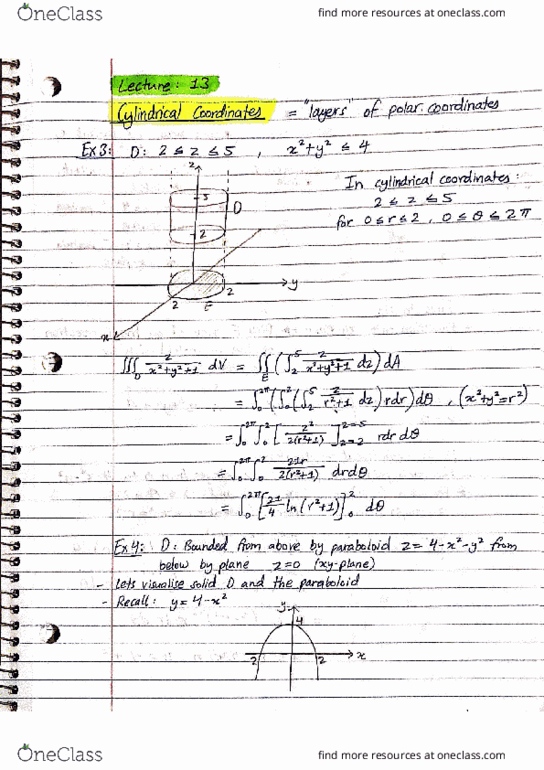 OneClass
find more resources at oneclass.com
Lecture: 13
Cylindrical Coordinates = "layers" of polar coordinates
Ex 3: D: 2 ≤ z ≤ 5 , x²+y² ≤ 4
In cylindrical coordinates:
2 ≤ z ≤ 5
for 0 ≤ r ≤ 2 , 0 ≤ θ ≤ 2π
z
5
D
2
y
2
2
E
x
∭_D z/(x²+y²+1) dV = ∬_E (∫_2^5 z/(x²+y²+1) dz) dA
= ∫_0^{2π} (∫_0^2 (∫_2^5 z/(r²+1) dz) r dr) dθ , (x²+y²=r²)
= ∫_0^{2π} ∫_0^2 [z²/(2(r²+1))]_{z=2}^{z=5} r dr dθ
= ∫_0^{2π} ∫_0^2 21r/(2(r²+1)) dr dθ
= ∫_0^{2π} [21/4 ln(r²+1)]_0^2 dθ
Ex 4: D: Bounded from above by paraboloid z = 4-x²-y² from
below by plane z=0 (xy-plane)
- Lets visualise solid D and the paraboloid
- Recall: y = 4-x²
y
4
2
2
x
OneClass
find more resources at oneclass.com